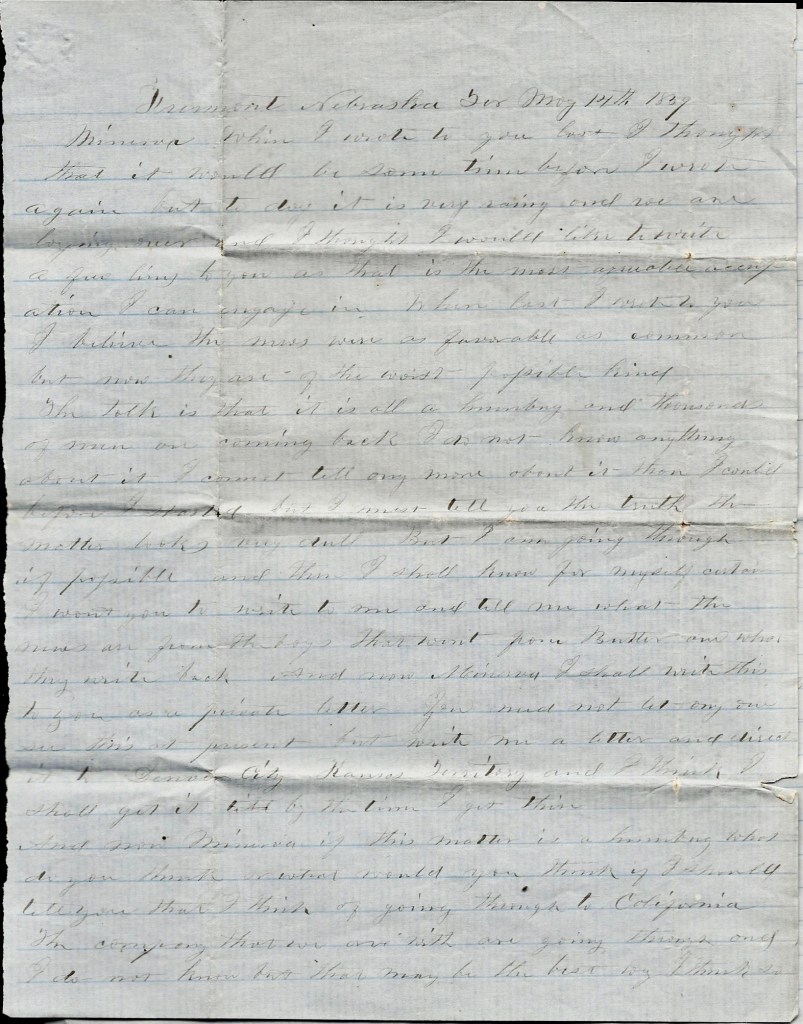 Fremont Nebraska Ter May 14th 1859
Minerva When I wrote to you last I thought
that it would be some time before I wrote
again but to day it is very rainy and we are
laying over and I thought I would like to write
a few lines to you as that is the most amiable occup
ation I can engage in When last I wrote to you
I believe the news were as favorable as common
but now they are of the worst possible kind
The talk is that it is all a humbug and thousands
of men are coming back I do not know anything
about it I cannot tell any more about it than I could
before I started but I must tell you the truth the
matter looks very dull But I am going through
if possible and then I shall know for myself
I want you to write to me and tell me what the
news are from the boys that went from Butler and what
they write back And now Minerva I shall write this
to you as a private letter You need not let any one
see this at present but write me a letter and direct
it to Denver City Kansas Territory and I think I
shall get it by the time I get thire
And now Minerva if this matter is a humbug what
do you think or what would you think if I should
tell you that I think of going through to California
The company that we are with are going through and
I do not know but that may be the best way I think so